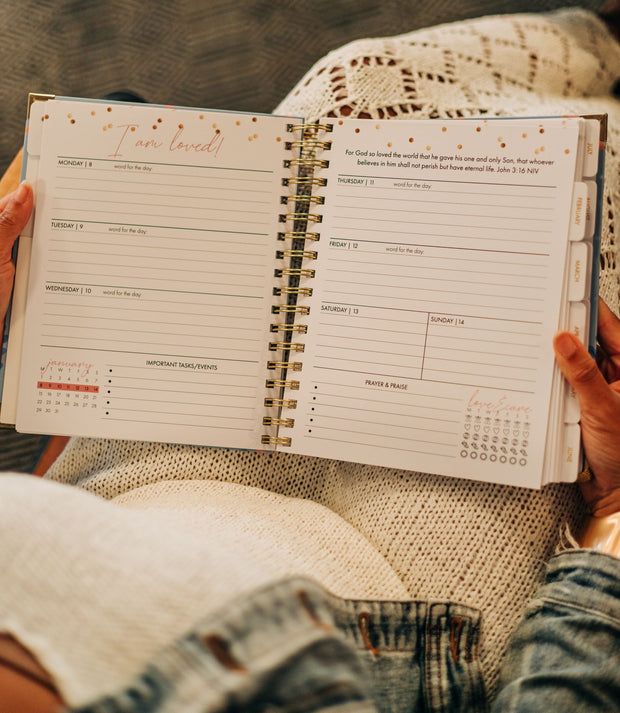 I am loved!
MONDAY | 8
word for the day:
TUESDAY | 9
word for the day:
WEDNESDAY | 10
word for the day:
january
M T W T F S S
1 2 3 4 5 6 7
8 9 10 11 12 13 14
15 16 17 18 19 20 21
22 23 24 25 26 27 28
29 30 31
IMPORTANT TASKS/EVENTS
For God so loved the world that he gave his one and only Son, that whoever
believes in him shall not perish but have eternal life. John 3:16 NIV
THURSDAY | 11
word for the day:
FRIDAY | 12
word for the day:
SATURDAY | 13
SUNDAY | 14
PRAYER & PRAISE
love&care
M T W T F S S
JULY
FEBRUARY
MARCH
JUNE